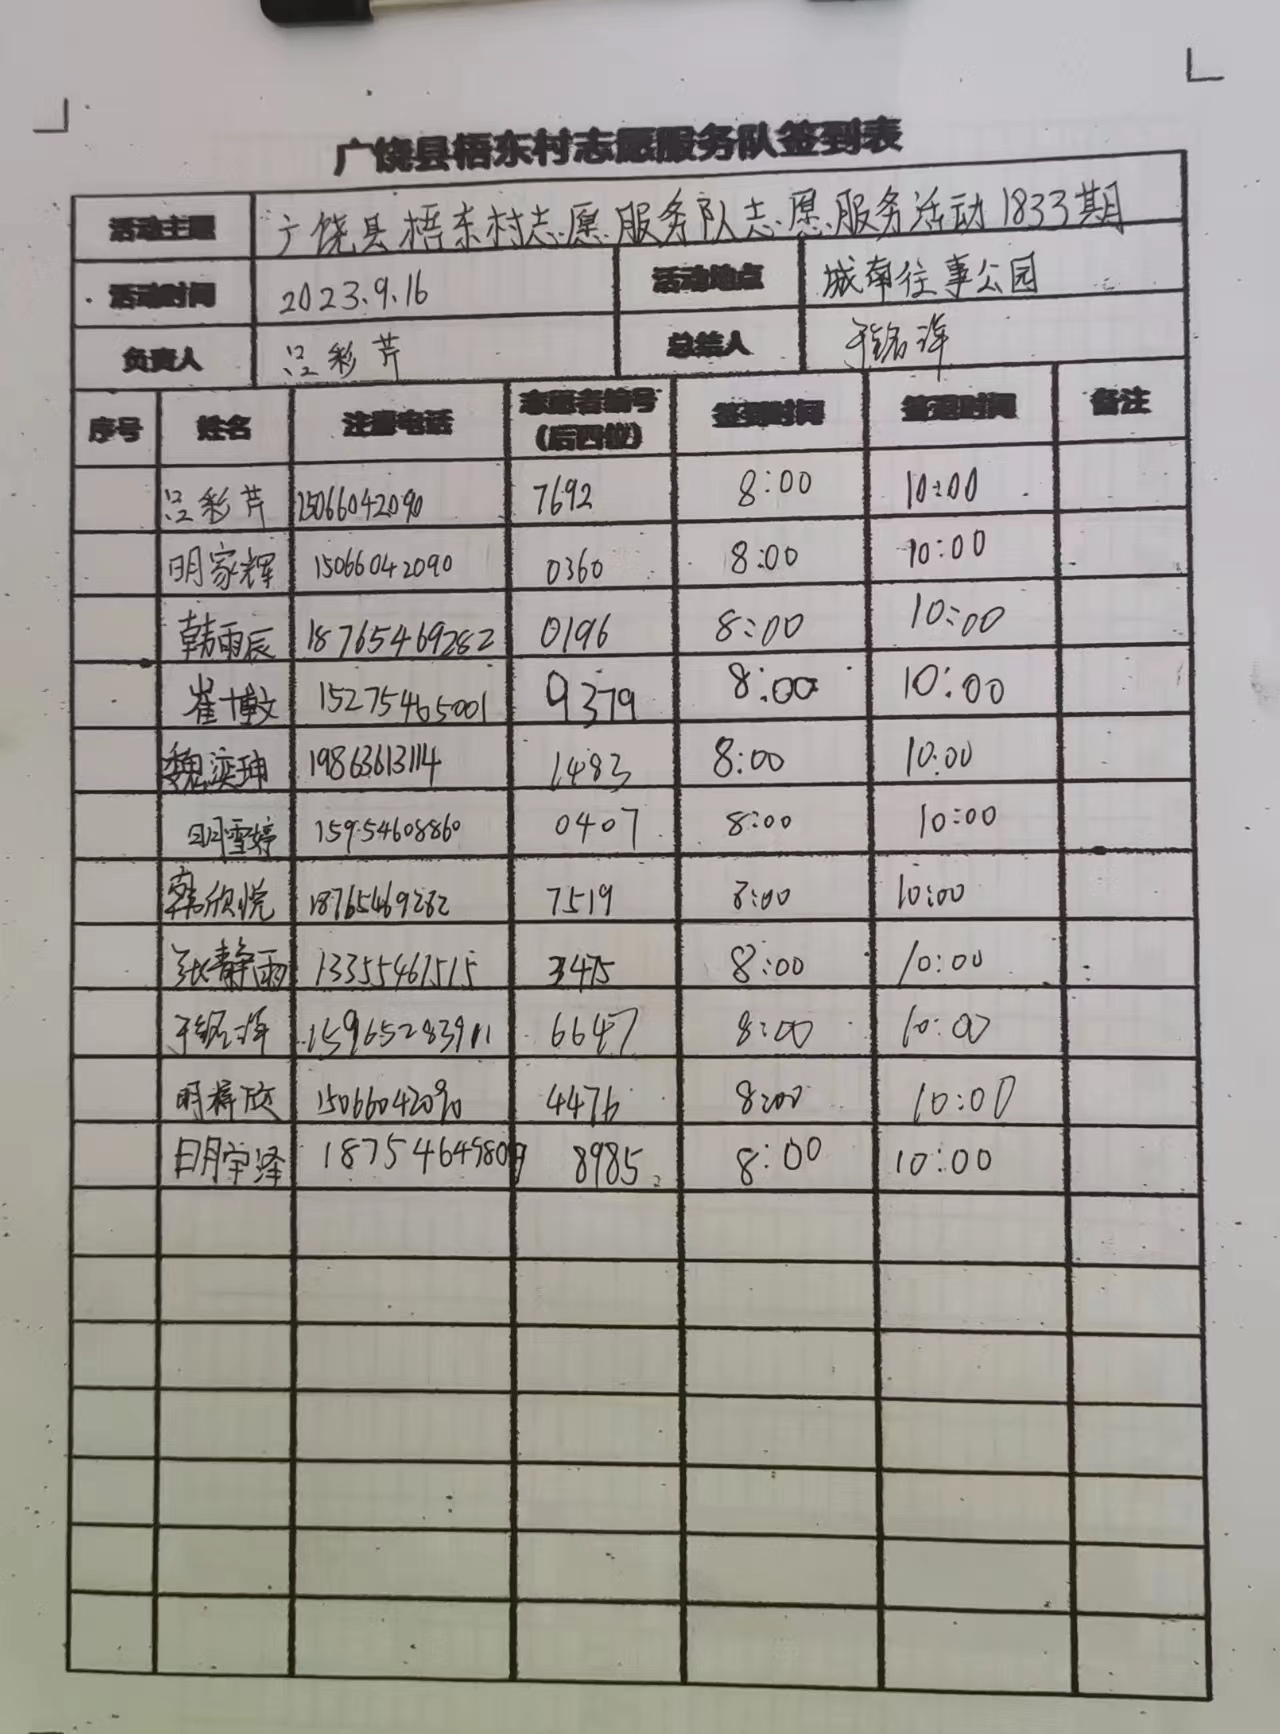 广饶县梧东村志愿服务队签到表
活动主题 广饶县梧东村志愿服务队志愿服务活动1833期
活动时间 2023.9.16 活动地点 城南往事公园
负责人 吕彩芹 总结人 于铭洋
序号 姓名 注册电话 志愿者编号(后四位) 签到时间 签退时间 备注
吕彩芹 15066042090 7692 8:00 10:00
明家辉 15066042090 0360 8:00 10:00
韩雨辰 18765469282 0196 8:00 10:00
崔博文 15275465001 9379 8:00 10:00
魏奕珅 19863613114 1483 8:00 10:00
明雪婷 15954608860 0407 8:00 10:00
韩欣悦 18765469282 7519 8:00 10:00
张静雨 13355461515 3475 8:00 10:00
于铭洋 15965283911 6647 8:00 10:00
明梓欣 15066042090 4476 8:00 10:00
明宇泽 8985 8:00 10:00